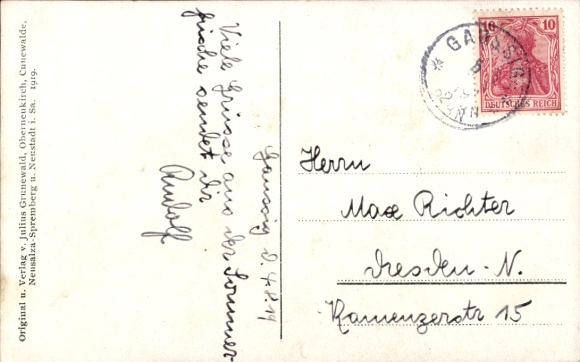 Original u. Verlag v. Julius Grunewald, Oberneukirch, Cunewalde,
Neusalza-Spremberg u. Neustadt i. Sa. 1919.
Gaussig d. 4.8.19
Viele Grüsse aus der Sommer
frische sendet dir
Rudolf
GAUSSIG
10 10
DEUTSCHES REICH
Herrn
Max Richter
Dresden-N.
Kamenzerstr 15